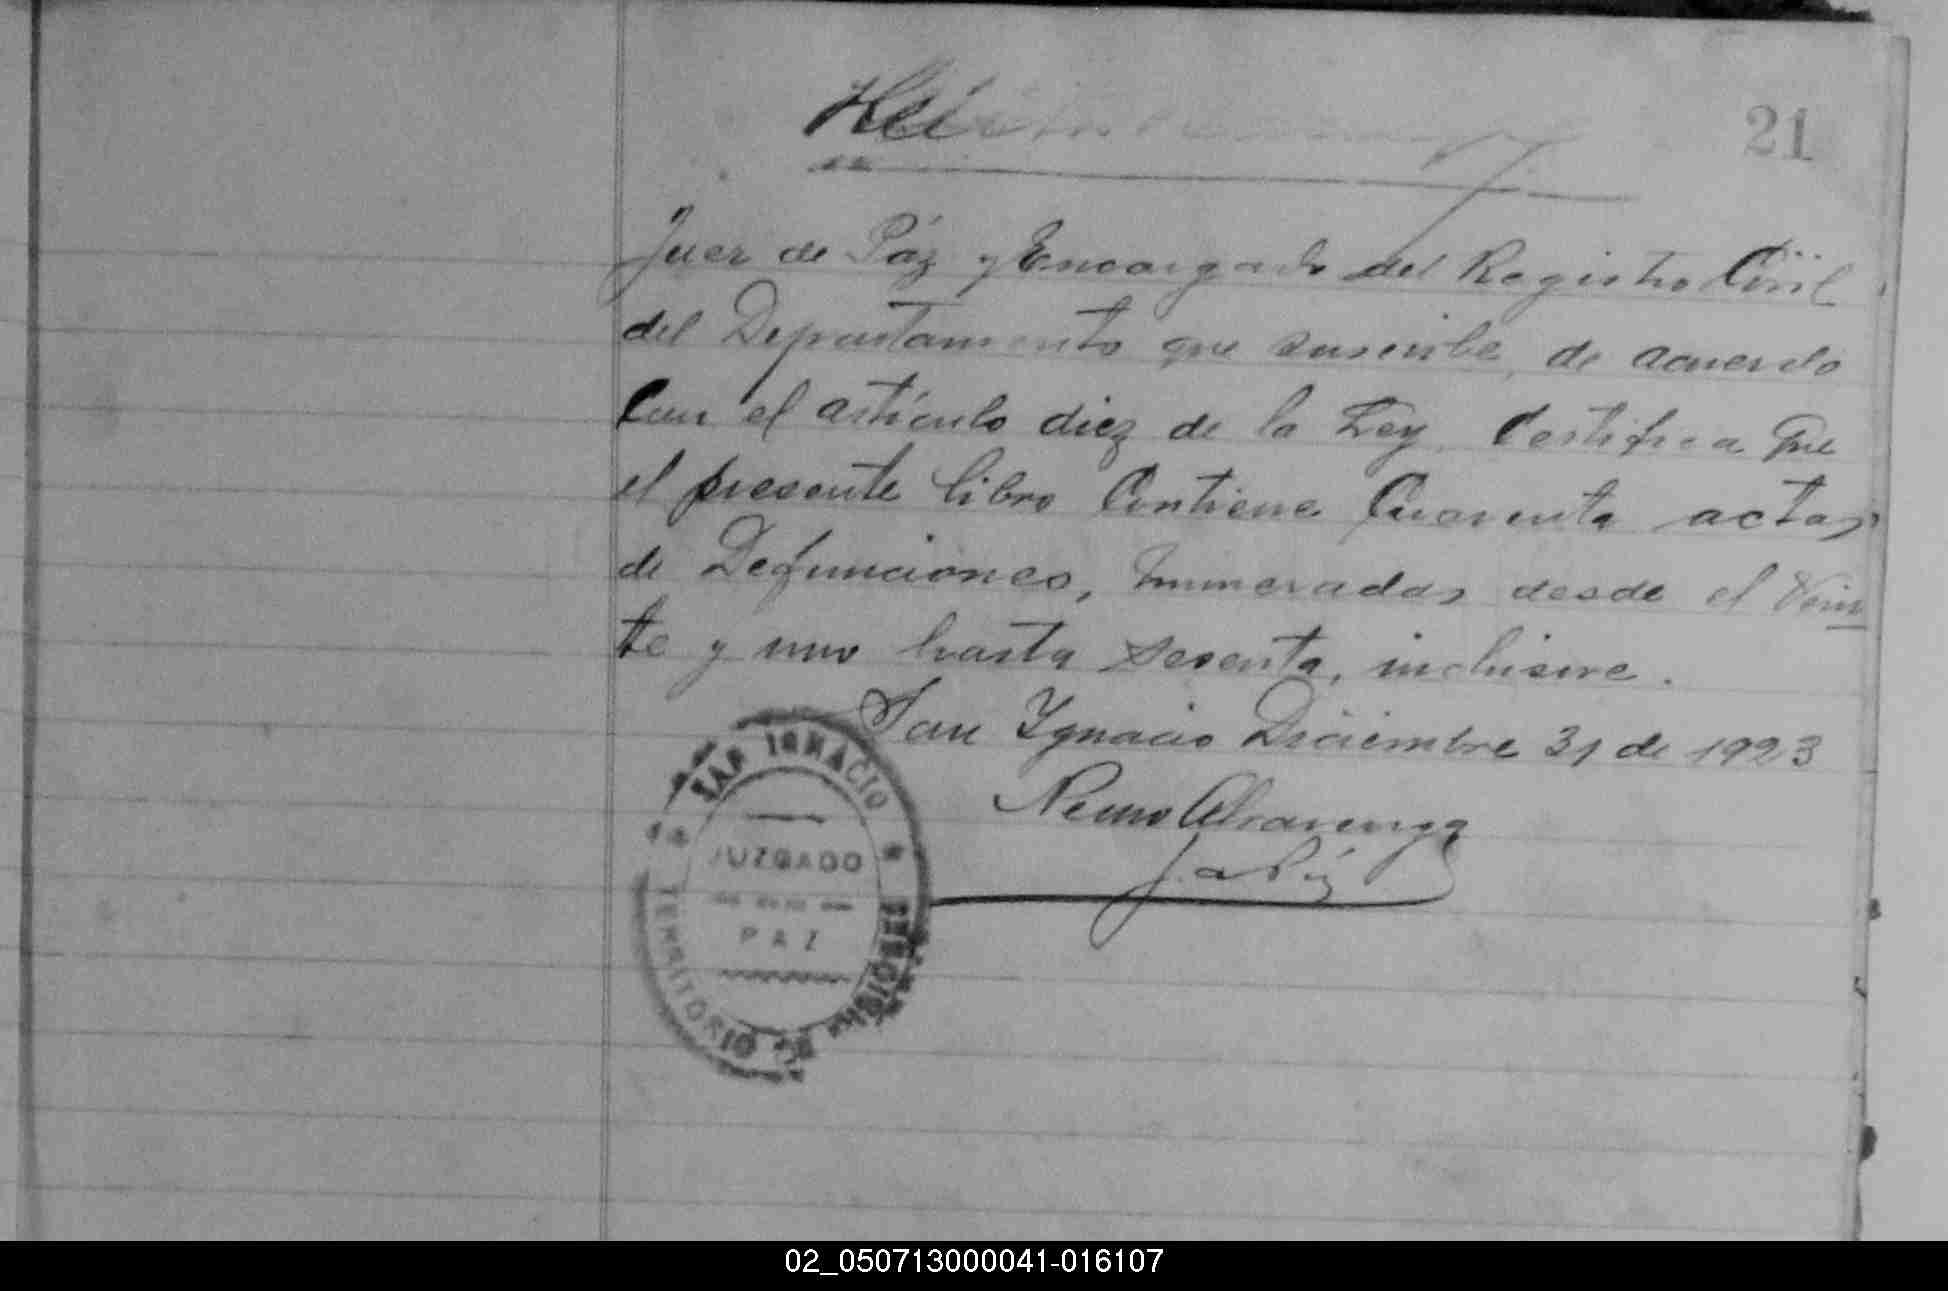 21
Juez de Páz y Encargado del Registro Civil
del Departamento que suscribe, de acuerdo
con el artículo diez de la Ley, Certifica que
el presente libro Contiene Cuarenta actas
de Defunciones, numeradas desde el Vein
te y uno hasta sesenta, inclusive.
San Ignacio Diciembre 31 de 1923
Alvarenga
SAN IGNACIO
JUZGADO
DE
PAZ
TERRITORIO DE MISIONES
02_050713000041-016107